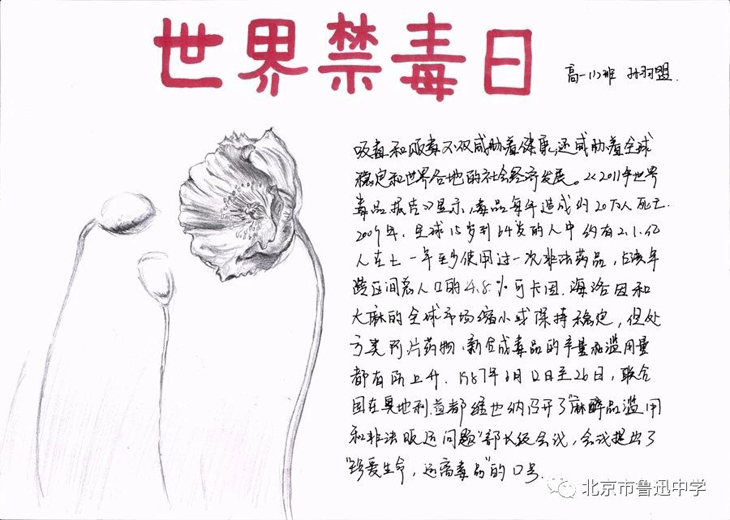 世界禁毒日
高一(1)班 孙羽盟
吸毒和贩毒不仅威胁着健康,还威胁着全球
稳定和世界各地的社会经济发展。《2011年世界
毒品报告》显示,毒品每年造成约20万人死亡.
2009年,全球15岁到64岁的人中约有2.1亿
人在上一年至少使用过一次非法药品,占该年
龄区间总人口的4.8%可卡因、海洛因和
大麻的全球市场缩小或保持稳定,但处
方类阿片药物、新合成毒品的产量和滥用量
都有所上升.1987年6月12日至26日,联合
国在奥地利首都维也纳召开了"麻醉品滥用
和非法贩运问题"部长级会议,会议提出了
"珍爱生命,远离毒品"的口号.
北京市鲁迅中学